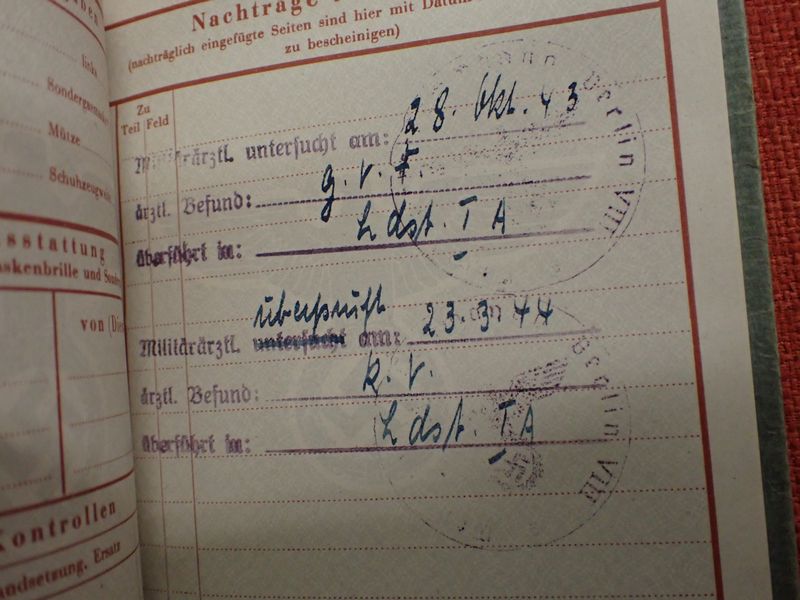 Nachträge
(nachträglich eingefügte Seiten sind hier mit Datum
zu bescheinigen)
Zu
Teil Feld
Militärärztl. untersucht am: 28. Okt. 43
ärztl. Befund: g. v. F.
überführt in: Ldst. I A
Berlin VIII
überprüft
Militärärztl. untersucht am: 23.3.44
ärztl. Befund: k. v.
überführt in: Ldst. I A
Berlin VIII
links
Mütze
von
Kontrollen
Ersatz